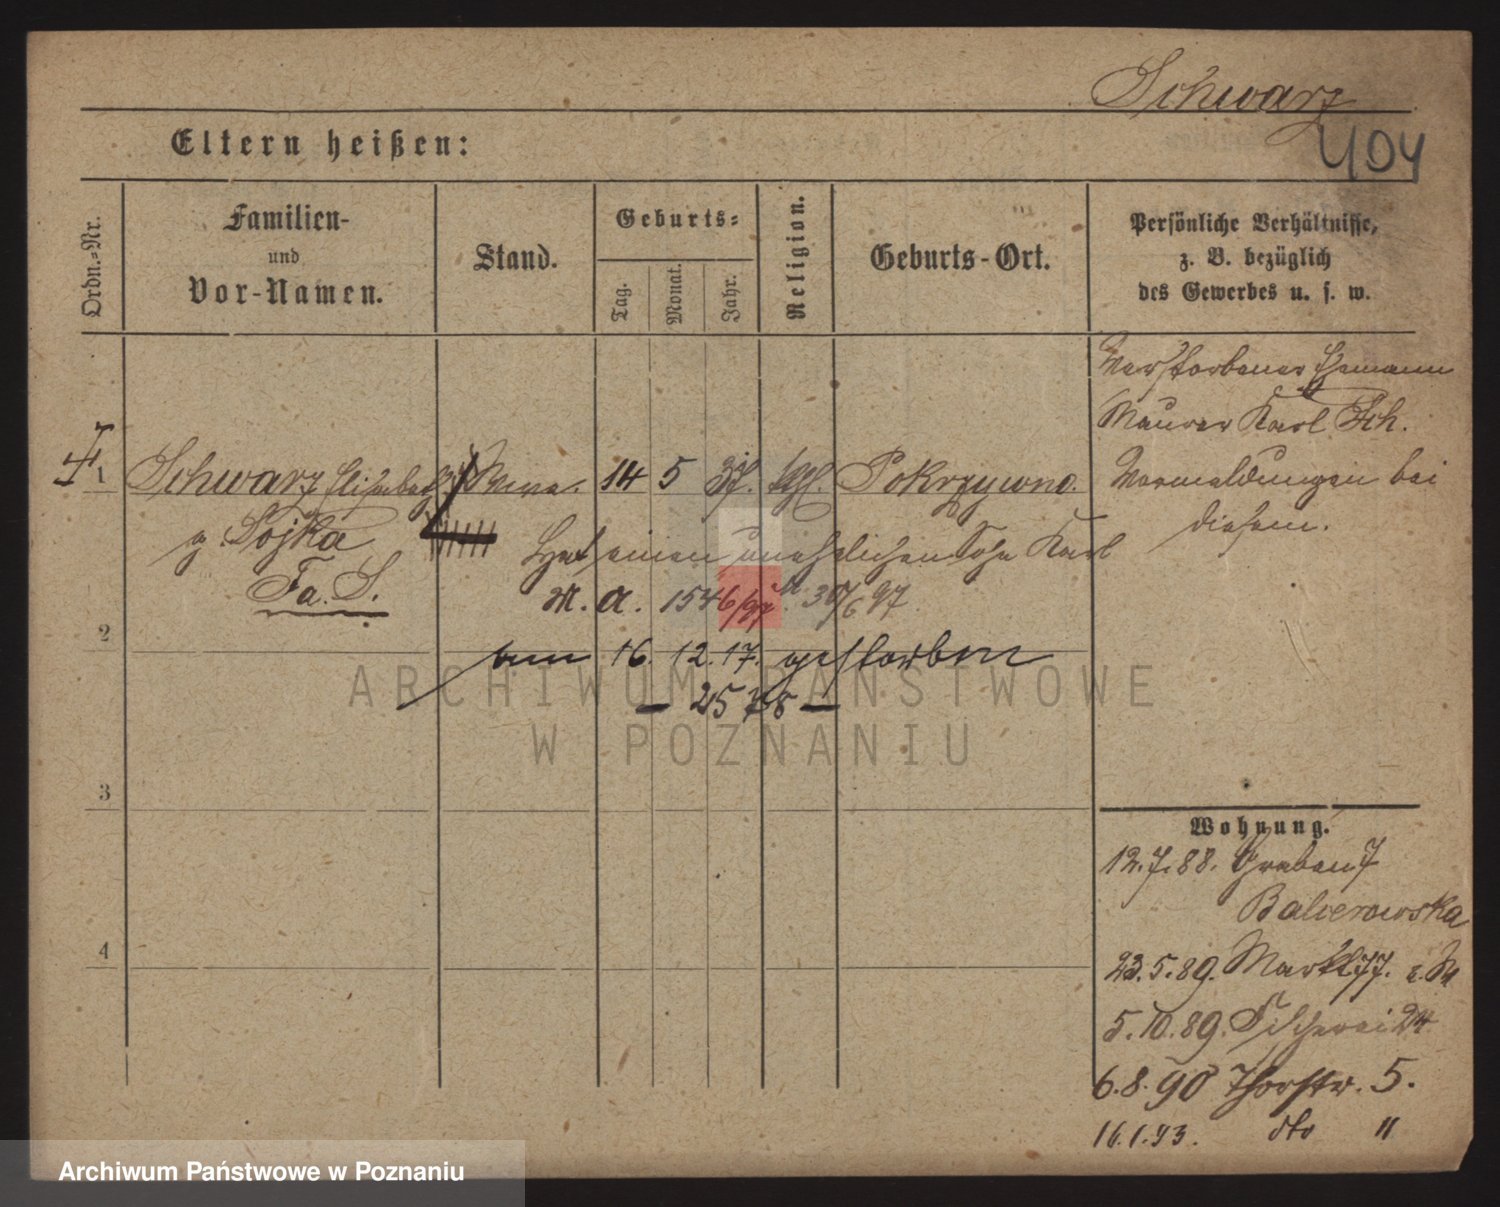 Schwarz
404
Eltern heißen:
Ordn.-Nr.
Familien-
und
Vor-Namen.
Stand.
Geburts-
Tag.
Monat.
Jahr.
Religion.
Geburts-Ort.
Persönliche Verhältnisse,
z. B. bezüglich
des Gewerbes u. s. w.
Verstorbener Ehemann
Maurer Karl Sch.
1 Schwarz Elisabeth Wwe. 14 5 Pokrzywno.
Vermeldungen bei
diesem.
g. Sojka
Hat einen unehelichen Sohn Karl
Fa. S.
M. a. 1546/97 30/6 97
2
am 16. 12. 17. gestorben
— 2578 —
3
4
Wohnung.
12.7.88. Graben 7
Balcerowska
23.5.89. Markt 77.
5.10.89. Fischerei 24
6.8.90 Thorstr. 5.
16.1.93. dto "
ARCHIWUM PAŃSTWOWE
W POZNANIU
Archiwum Państwowe w Poznaniu